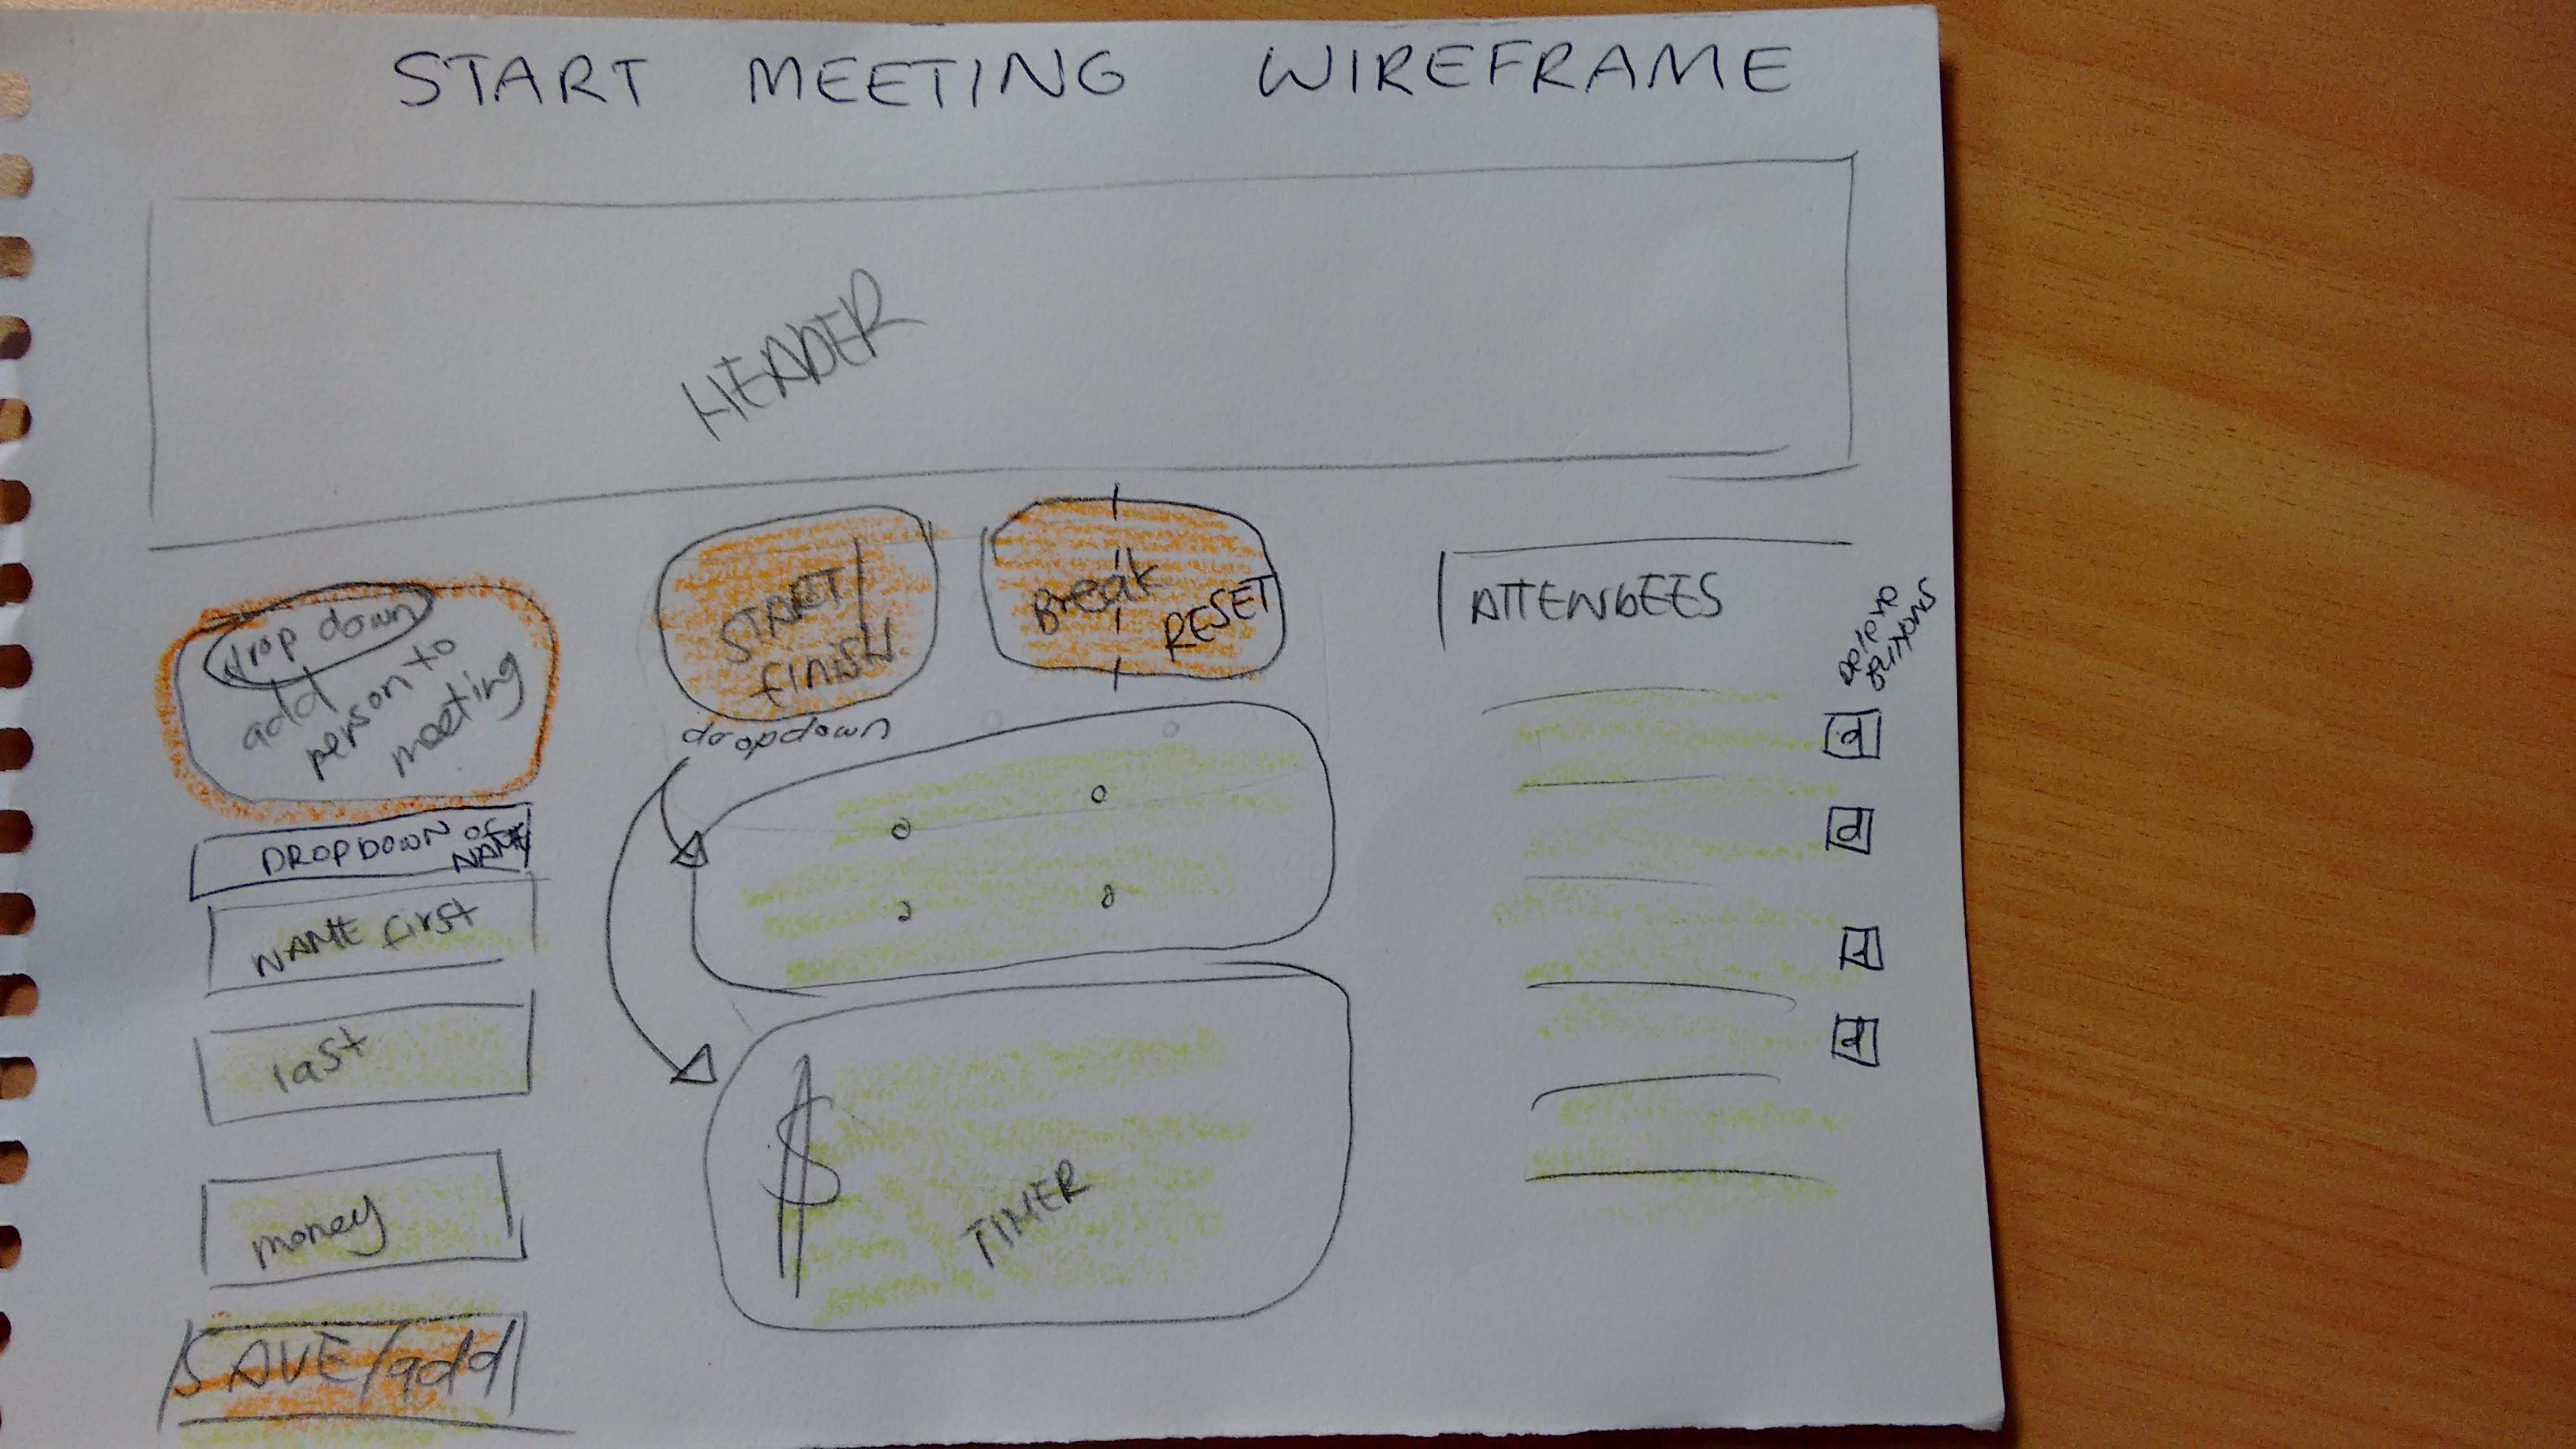 START MEETING WIREFRAME
HEADER
drop down
add
person to
meeting
DROPDOWN OF
NAME
NAME first
last
money
SAVE/add
START/
finish
Break
RESET
dropdown
$
TIMER
ATTENDEES
buttons
d
d
d
d